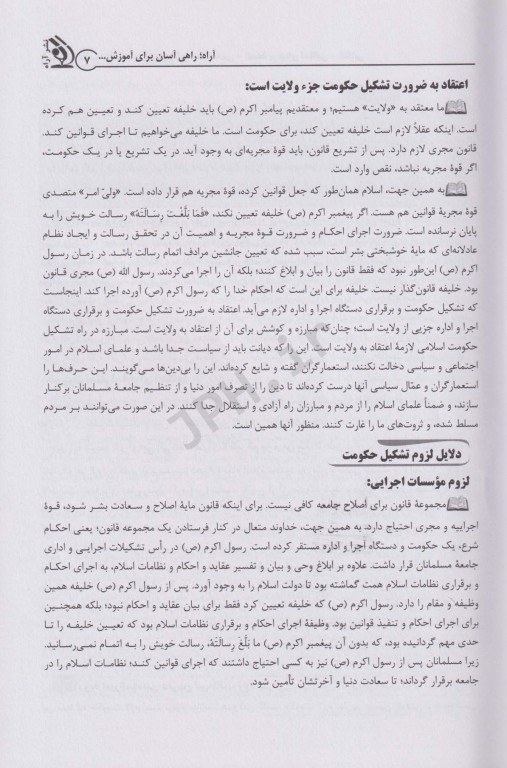 نشر آراه
آراه؛ راهی آسان برای آموزش... ۷
اعتقاد به ضرورت تشکیل حکومت جزء ولایت است:
ما معتقد به «ولایت» هستیم؛ و معتقدیم پیامبر اکرم (ص) باید خلیفه تعیین کند و تعیین هم کرده
است. اینکه عقلاً لازم است خلیفه تعیین کند، برای حکومت است. ما خلیفه می‌خواهیم تا اجرای قوانین کند.
قانون مجری لازم دارد. پس از تشریع قانون، باید قوهٔ مجریه‌ای به وجود آید. در یک تشریع یا در یک حکومت،
اگر قوهٔ مجریه نباشد، نقص وارد است.
به همین جهت، اسلام همان‌طور که جعل قوانین کرده، قوهٔ مجریه هم قرار داده است. «ولیّ امر» متصدی
قوهٔ مجریهٔ قوانین هم هست. اگر پیغمبر اکرم (ص) خلیفه تعیین نکند، «فَمَا بَلَّغْتَ رِسالَتَهُ» رسالت خویش را به
پایان نرسانده است. ضرورت اجرای احکام و ضرورت قوهٔ مجریه و اهمیت آن در تحقق رسالت و ایجاد نظام
عادلانه‌ای که مایهٔ خوشبختی بشر است، سبب شده که تعیین جانشین مرادف اتمام رسالت باشد. در زمان رسول
اکرم (ص) این‌طور نبود که فقط قانون را بیان و ابلاغ کنند؛ بلکه آن را اجرا می‌کردند. رسول الله (ص) مجری قانون
بود. خلیفه قانون‌گذار نیست. خلیفه برای این است که احکام خدا را که رسول اکرم (ص) آورده اجرا کند. اینجاست
که تشکیل حکومت و برقراری دستگاه اجرا و اداره لازم می‌آید. اعتقاد به ضرورت تشکیل حکومت و برقراری دستگاه
اجرا و اداره جزیی از ولایت است؛ چنان‌که مبارزه و کوشش برای آن از اعتقاد به ولایت است. مبارزه در راه تشکیل
حکومت اسلامی لازمهٔ اعتقاد به ولایت است. این را که دیانت باید از سیاست جدا باشد و علمای اسلام در امور
اجتماعی و سیاسی دخالت نکنند، استعمارگران گفته و شایع کرده‌اند. این را بی‌دین‌ها می‌گویند. این حرف‌ها را
استعمارگران و عمّال سیاسی آنها درست کرده‌اند تا دین را از تصرف امور دنیا و از تنظیم جامعهٔ مسلمانان برکنار
سازند، و ضمناً علمای اسلام را از مردم و مبارزان راه آزادی و استقلال جدا کنند. در این صورت می‌توانند بر مردم
مسلط شده، و ثروت‌های ما را غارت کنند. منظور آنها همین است.
دلایل لزوم تشکیل حکومت
لزوم مؤسسات اجرایی:
مجموعهٔ قانون برای اصلاح جامعه کافی نیست. برای اینکه قانون مایهٔ اصلاح و سعادت بشر شود، قوهٔ
اجراییه و مجری احتیاج دارد، به همین جهت، خداوند متعال در کنار فرستادن یک مجموعه قانون؛ یعنی احکام
شرع، یک حکومت و دستگاه اجرا و اداره مستقر کرده است. رسول اکرم (ص) در رأس تشکیلات اجرایی و اداری
جامعهٔ مسلمانان قرار داشت. علاوه بر ابلاغ وحی و بیان و تفسیر عقاید و احکام و نظامات اسلام، به اجرای احکام
و برقراری نظامات اسلام همت گماشته بود تا دولت اسلام را به وجود آورد. پس از رسول اکرم (ص) خلیفه همین
وظیفه و مقام را دارد. رسول اکرم (ص) که خلیفه تعیین کرد فقط برای بیان عقاید و احکام نبود؛ بلکه همچنین
برای اجرای احکام و تنفیذ قوانین بود. وظیفهٔ اجرای احکام و برقراری نظامات اسلام بود که تعیین خلیفه را تا
حدی مهم گردانیده بود، که بدون آن پیغمبر اکرم (ص) ما بَلَّغَ رِسالَتَهُ، رسالت خویش را به اتمام نمی‌رسانید.
زیرا مسلمانان پس از رسول اکرم (ص) نیز به کسی احتیاج داشتند که اجرای قوانین کند؛ نظامات اسلام را در
جامعه برقرار گرداند؛ تا سعادت دنیا و آخرتشان تأمین شود.
JPH.ir